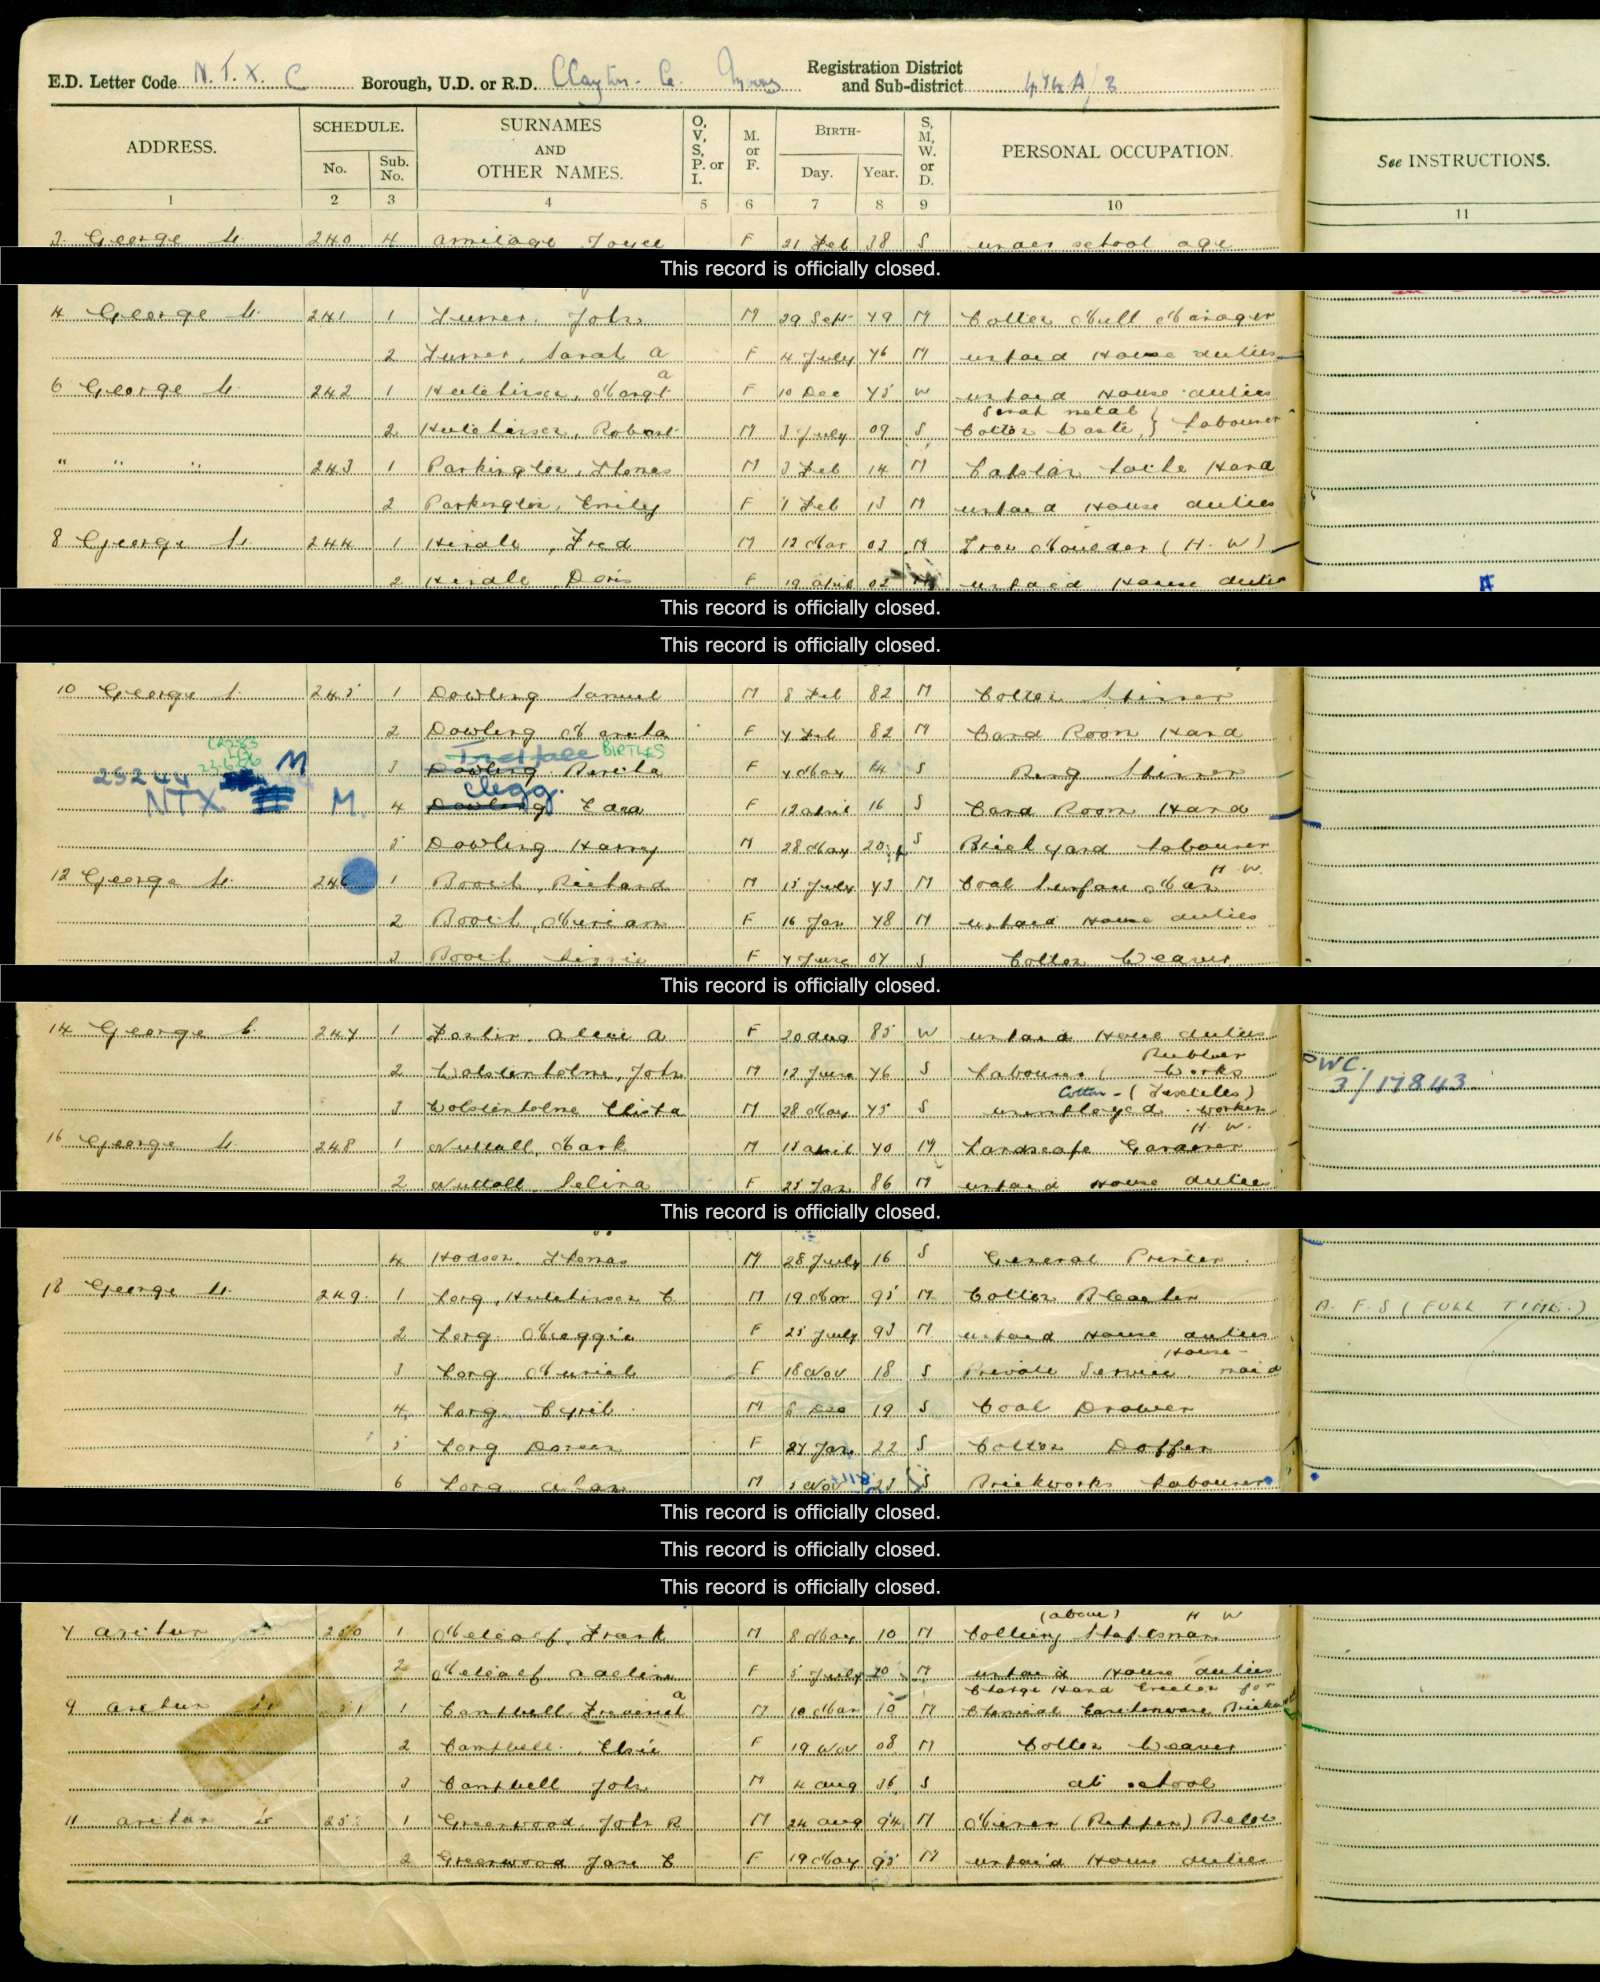 E.D. Letter Code N.T.X. C Borough, U.D. or R.D. Clayton-Le-Moors Registration District and Sub-district 474A/3
ADDRESS. SCHEDULE. SURNAMES AND OTHER NAMES. O, V, S, P. or I. M. or F. BIRTH- S, M, W. or D. PERSONAL OCCUPATION. See INSTRUCTIONS.
No. Sub. No. Day. Year.
1 2 3 4 5 6 7 8 9 10 11
3 George St. 240 4 Armitage Joyce F 21 Feb 38 S under school age
This record is officially closed.
4 George St. 241 1 Turner, John M 29 Sept 79 M Cotton Mill Manager
2 Turner, Sarah A F 4 July 76 M unpaid House duties
6 George St. 242 1 Hutchinson, Margt A F 10 Dec 75 W unpaid House duties
2 Hutchinson, Robert M 3 July 09 S Scrap metal } Cotton Waste, } Labourer
" " " 243 1 Parkington, Thomas M 3 Feb 14 M Capstan Lathe Hand
2 Parkington, Emily F 1 Feb 13 M unpaid House duties
8 George St 244 1 Hindle, Fred M 12 Mar 03 M Iron Moulder (H.W)
2 Hindle, Doris F 19 April 02 M unpaid House duties
This record is officially closed.
This record is officially closed.
10 George St 245 1 Dowling Samuel M 8 Feb 82 M Cotton Spinner
2 Dowling Moneta F 7 Feb 82 M Card Room Hand
BIRTHS
25244 M 3 Dowling F 7 May 14 S Ring Spinner
NTX M. Clegg.
4 Dowling Edna F 12 April 16 S Card Room Hand
5 Dowling Harry M 28 May 20 S Brick yard Labourer
12 George St. 246 1 Booth, Richard M 15 July 73 M Coal Surface Man H.W.
2 Booth, Miriam F 16 Jan 78 M unpaid House duties
3 Booth Lizzie F 7 June 07 S Cotton Weaver
This record is officially closed.
14 George St. 247 1 Foster, Alice A F 20 Aug 85 W unpaid House duties
2 Wolstenholme, John M 12 June 76 S Labourer (Rubber Works
PWC. 3/17843
3 Wolstenholme M 28 May 75 S unemployed Cotton - (Textiles) worker
16 George St. 248 1 Nuttall, Mark M 15 April 70 M Landscape Gardener H.W.
2 Nuttall, Selina F 25 Jan 86 M unpaid House duties
This record is officially closed.
4 Hodson, Thomas M 28 July 16 S General Printer.
18 George St. 249. 1 Long, Hutchinson C M 19 Mar 95 M Cotton Bleacher A.F.S (FULL TIME.)
2 Long, Maggie F 25 July 93 M unpaid House duties
3 Long Muriel F 18 Nov 18 S Private Service House-maid
4 Long Cyril M 8 Dec 19 S Coal Drawer
5 Long Doreen F 27 Jan 22 S Cotton Doffer
6 Long Alan M 5 Nov 23 S Brickworks Labourer
This record is officially closed.
This record is officially closed.
This record is officially closed.
7 Arthur St 250 1 Metcalf, Frank M 8 May 10 M Colliery Shaftsman (above) H W
2 Metcalf Adeline F 5 July 10 M unpaid House duties
9 Arthur St 251 1 Campbell, Frederick A M 10 Mar 10 M Charge Hand Erector for Chemical Earthenware Brickworks
2 Campbell, Elsie F 19 Nov 08 M Cotton Weaver
3 Campbell John M 4 Aug 36 S at school
11 Arthur St 252 1 Greenwood, John R M 24 Aug 94 M Miner (Ripper) Below
2 Greenwood Jane E F 19 May 95 M unpaid House duties